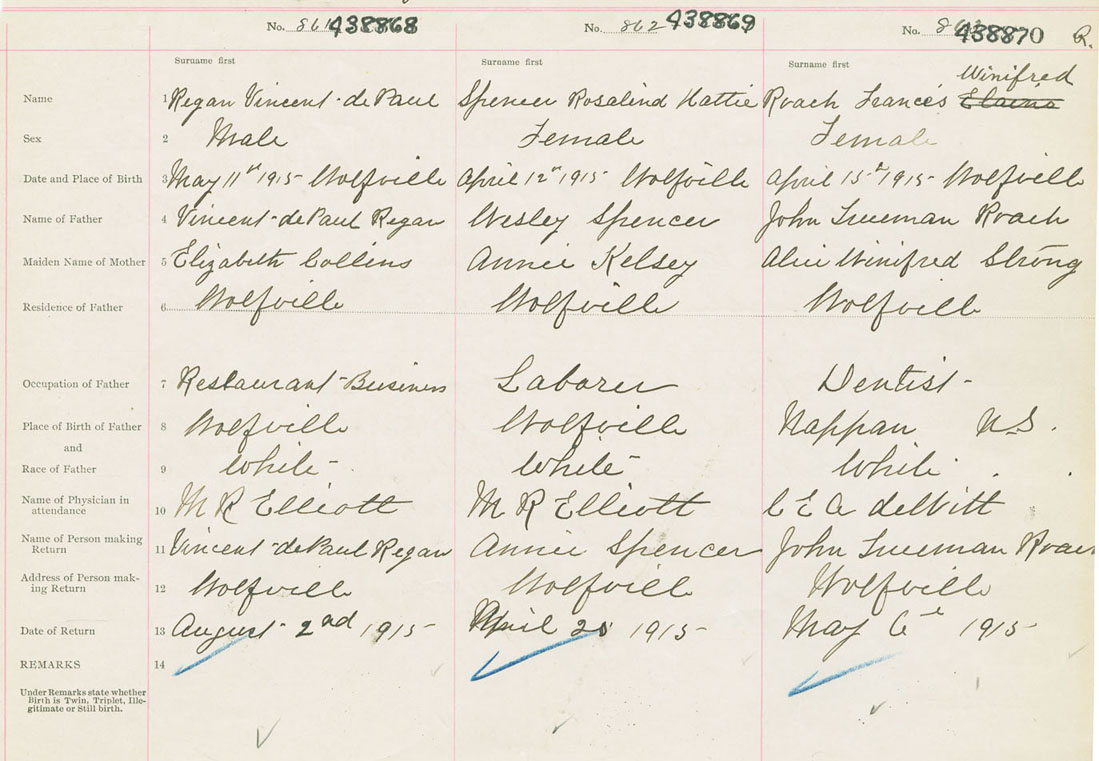 No. 861 438868 No. 862 438869 No. 438870 R.
Surname first Surname first Surname first
Winifred
Name 1 Regan Vincent-de Paul Spencer Rosalind Hattie Roach Frances Elaine
Sex 2 Male Female Female
Date and Place of Birth 3 May 11th 1915 Wolfville April 12th 1915 Wolfville April 15th 1915 Wolfville
Name of Father 4 Vincent-de Paul Regan Wesley Spencer John Trueman Roach
Maiden Name of Mother 5 Elizabeth Collins Annie Kelsey Alice Winifred Strong
Residence of Father 6 Wolfville Wolfville Wolfville
Occupation of Father 7 Restaurant-Business Laborer Dentist-
Place of Birth of Father 8 Wolfville Wolfville Nappan N.S.
and
Race of Father 9 White White White
Name of Physician in
attendance 10 M R Elliott M R Elliott C E A deWitt
Name of Person making
Return 11 Vincent-de Paul Regan Annie Spencer John Trueman Roach
Address of Person mak-
ing Return 12 Wolfville Wolfville Wolfville
Date of Return 13 August 2nd 1915 April 20 1915 May 6th 1915
REMARKS 14
Under Remarks state whether
Birth is Twin, Triplet, Ille-
gitimate or Still birth.